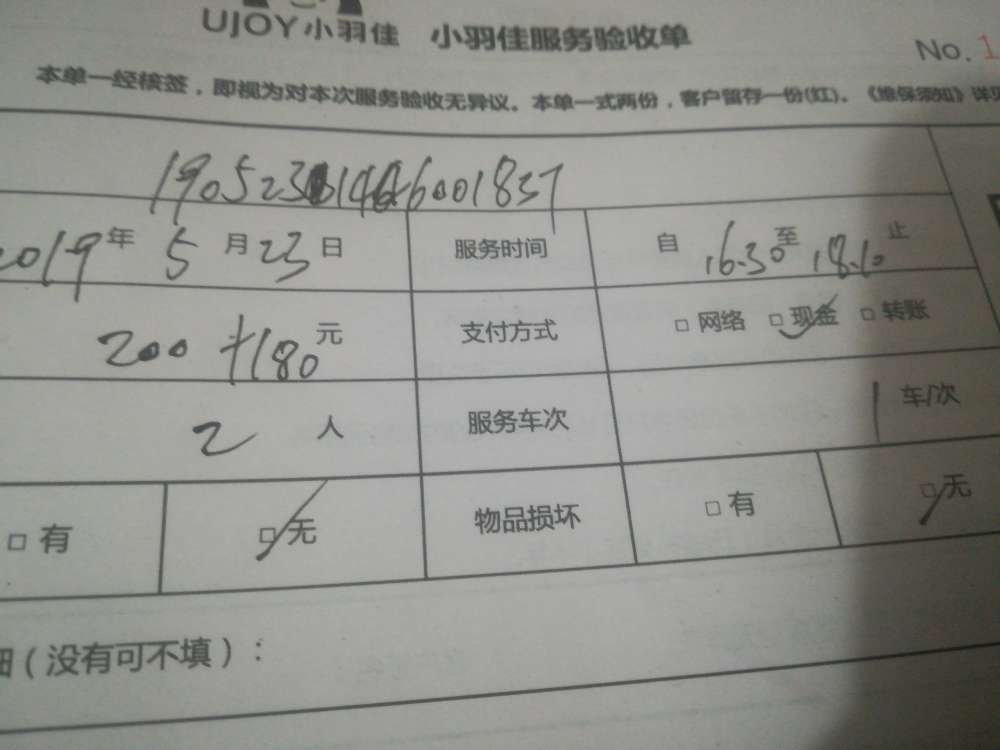 UJOY小羽佳 小羽佳服务验收单
No. 1
本单一经核签，即视为对本次服务验收无异议。本单一式两份，客户留存一份(红)。《维保须知》详见
2019年5月23日 服务时间 自16.30至18.10止
200+180元 支付方式 □网络 □现金 □转账
2人 服务车次 1车/次
□有 □无 物品损坏 □有 □无
细（没有可不填）：